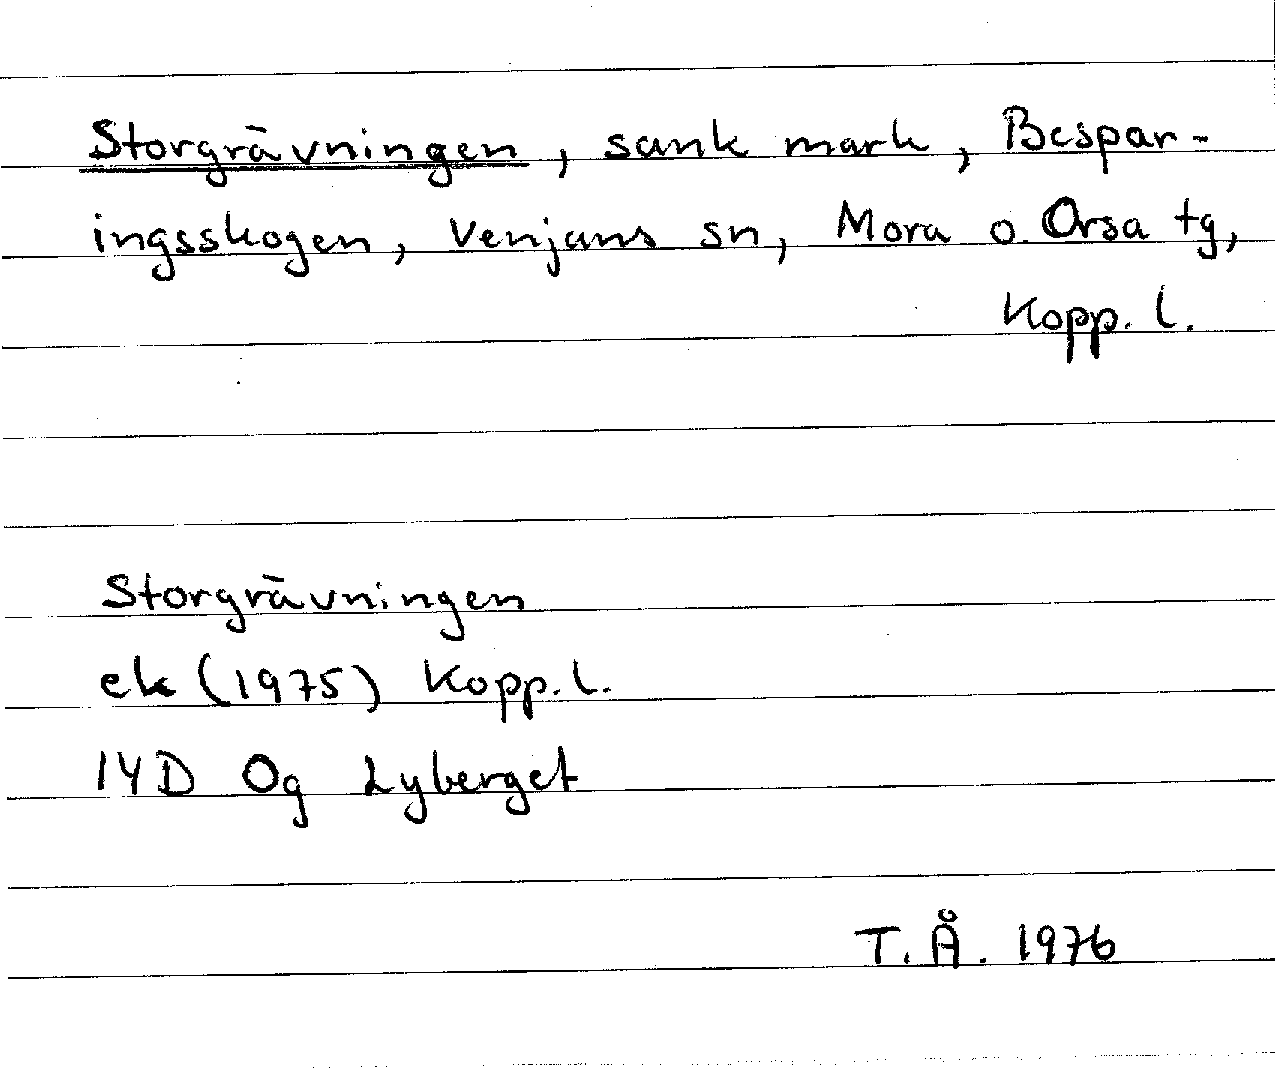 Storgrävningen, sank mark, Bespar-
ingsskogen, Venjans sn, Mora o. Orsa tg,
Kopp. l.
Storgrävningen
ek (1975) Kopp. l.
14D Og Lyberget
T.Å. 1976